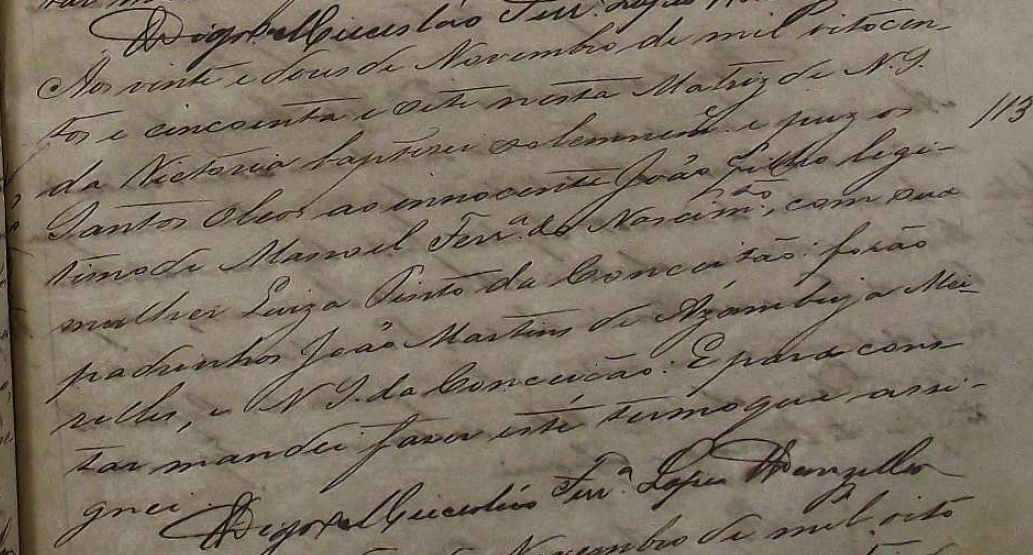 Vigr.º Miceslão Ferr.ª Lopes
Aos vinte e dous de Novembro de mil oitocen-
tos e cincoenta e sete nesta Matriz de N. S.
da Victoria baptisei solemnem.e e puz os
Santos Oleos ao innocente João filho legi-
timo de Manoel Ferr.ª do Nascim.to, com sua
mulher Luiza Pinto da Conceição: forão
padrinhos João Martins de Azambuja Mei-
relles, e N. S. da Conceição: E para cons
tar mandei fazer este termo que assi-
gnei.
Vigr.º Miceslão Ferr.ª Lopes Wanzeller
Novembro de mil oito
113